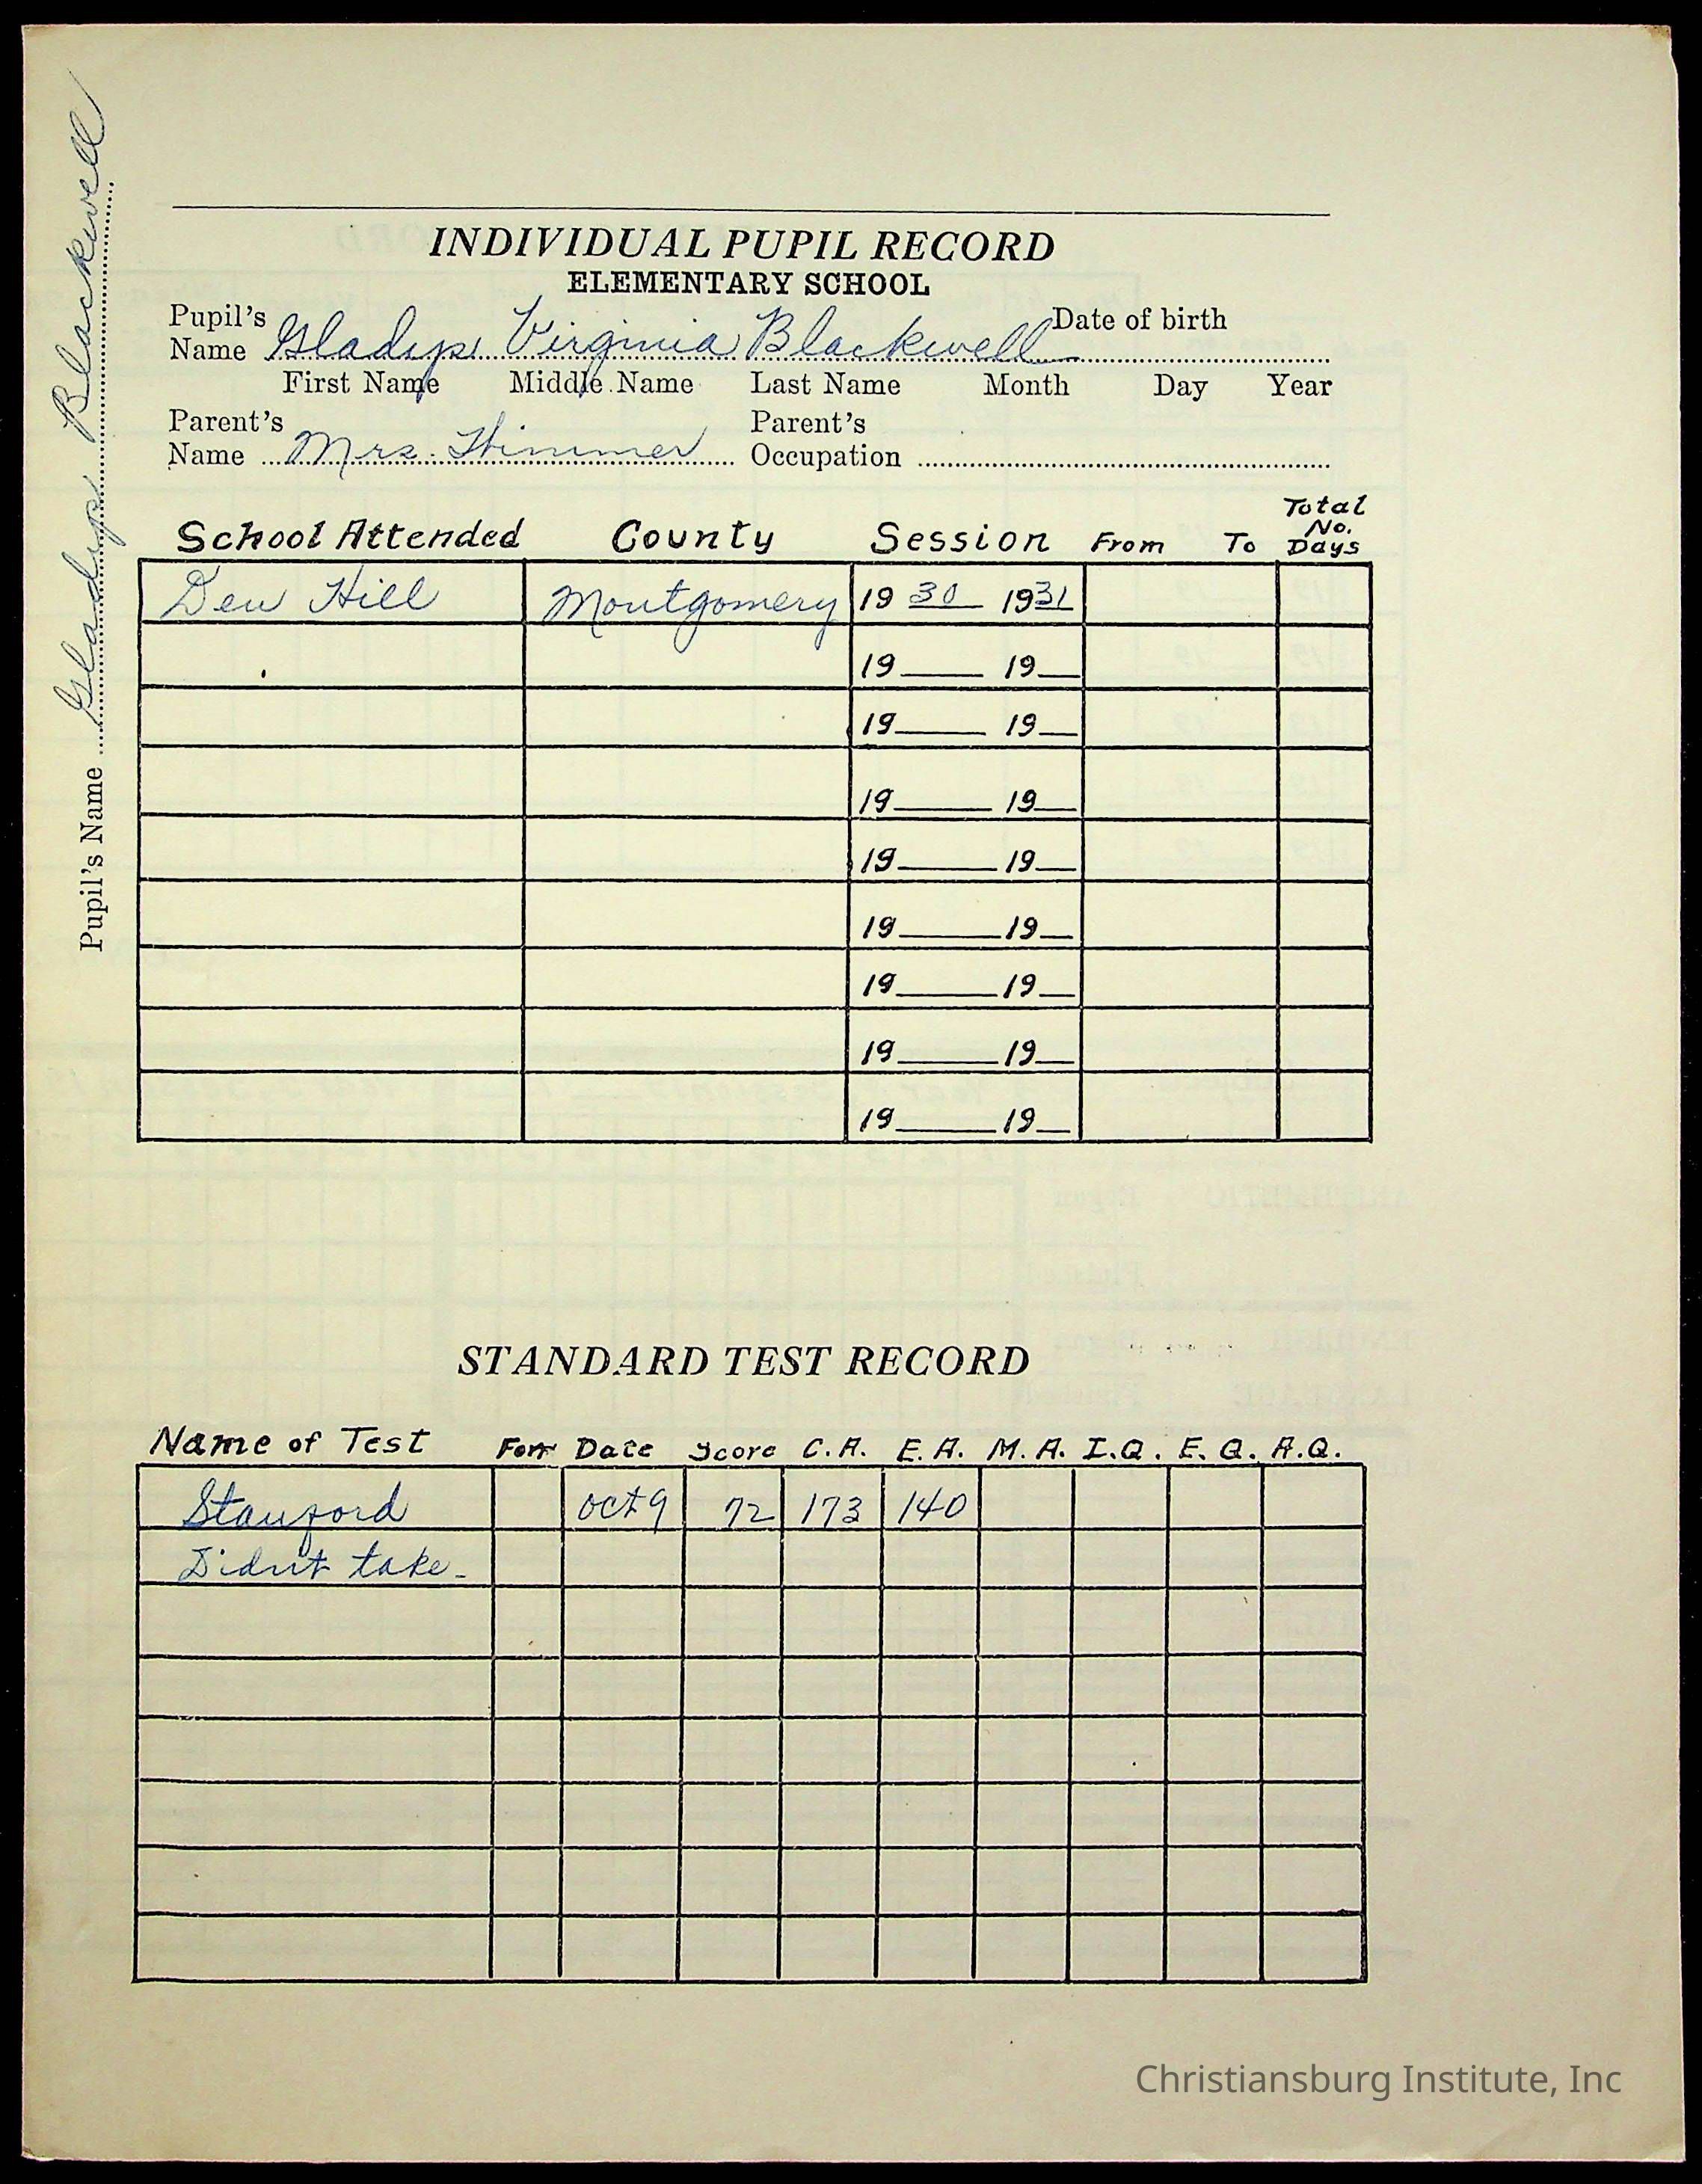 INDIVIDUAL PUPIL RECORD
ELEMENTARY SCHOOL
Pupil's Name Gladys Virginia Blackwell Date of birth
First Name Middle Name Last Name Month Day Year
Parent's Name Mrs. Parent's Occupation
School Attended County Session From To Total No. Days
Dew Hill Montgomery 19 30 19 31
19 19
19 19
19 19
19 19
19 19
19 19
19 19
19 19
Pupil's Name Gladys Blackwell
STANDARD TEST RECORD
Name of Test Form Date Score C.A. E.A. M.A. I.Q. E.Q. A.Q.
Stanford Oct 9 72 173 140
Didn't take
Christiansburg Institute, Inc